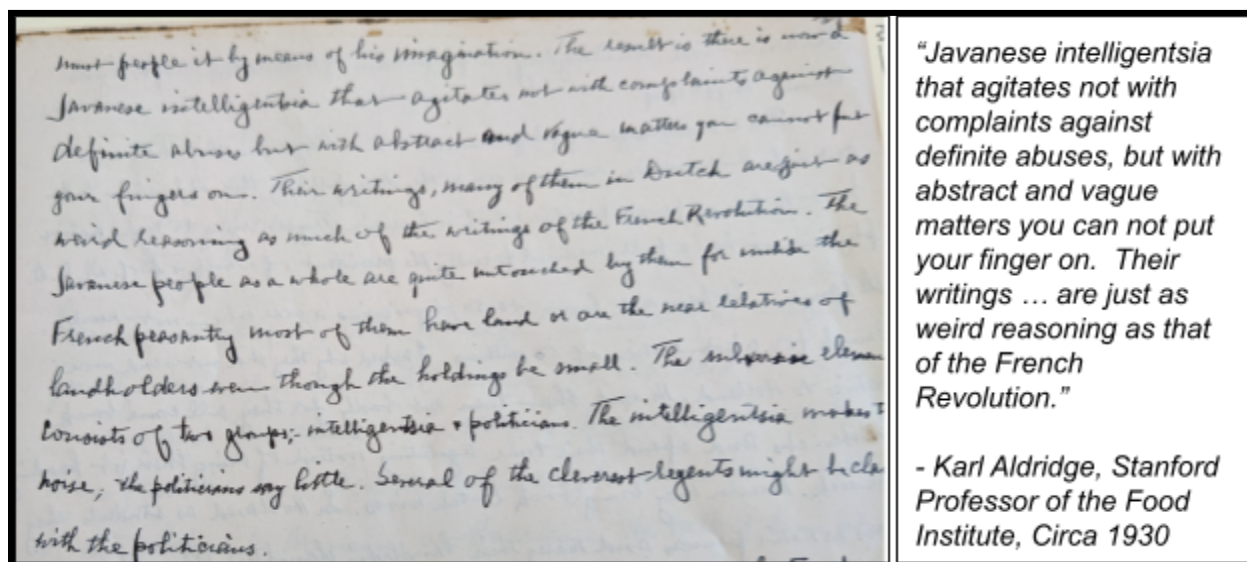 must people it by means of his imagination. The result is there is now a
Javanese intelligentsia that agitates not with complaints against
definite abuses but with abstract and vague matters you cannot put
your fingers on. Their writings, many of them in Dutch are just as
weird reasoning as much of the writings of the French Revolution. The
Javanese people as a whole are quite untouched by them for unlike the
French peasantry most of them have land or are the near relatives of
landholders even though the holdings be small. The
consists of two groups; intelligentsia & politicians. The intelligentsia makes
noise, the politicians say little. Several of the cleverest regents might be
with the politicians.
“Javanese intelligentsia
that agitates not with
complaints against
definite abuses, but with
abstract and vague
matters you can not put
your finger on. Their
writings … are just as
weird reasoning as that
of the French
Revolution.”
- Karl Aldridge, Stanford
Professor of the Food
Institute, Circa 1930